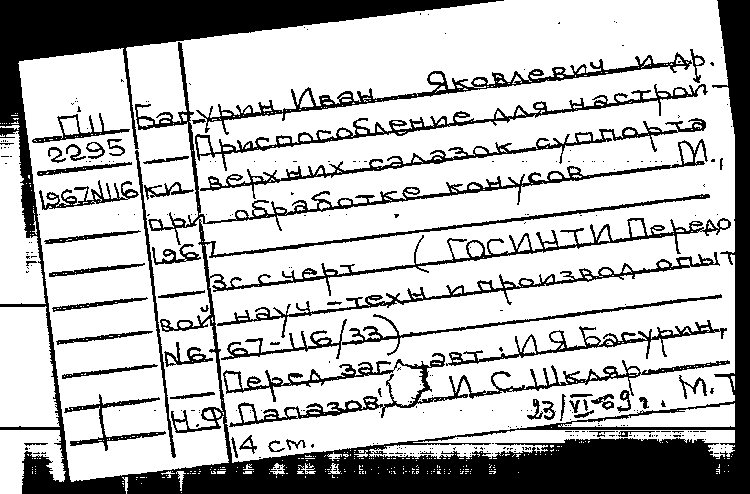 Багурин, Иван Яковлевич и др.
П11
2295
1967N116
Приспособление для настрой-
ки верхних салазок суппорта
при обработке конусов М.,
1967
3с с черт (ГОСИНТИ Передо
вой науч-техн и производ опыт
N6-67-116/33)
Перед загл авт: И Я Багурин,
Н.Ф Папазов, И С Шкляр
23/VI-69г. М.Т
14 ст.